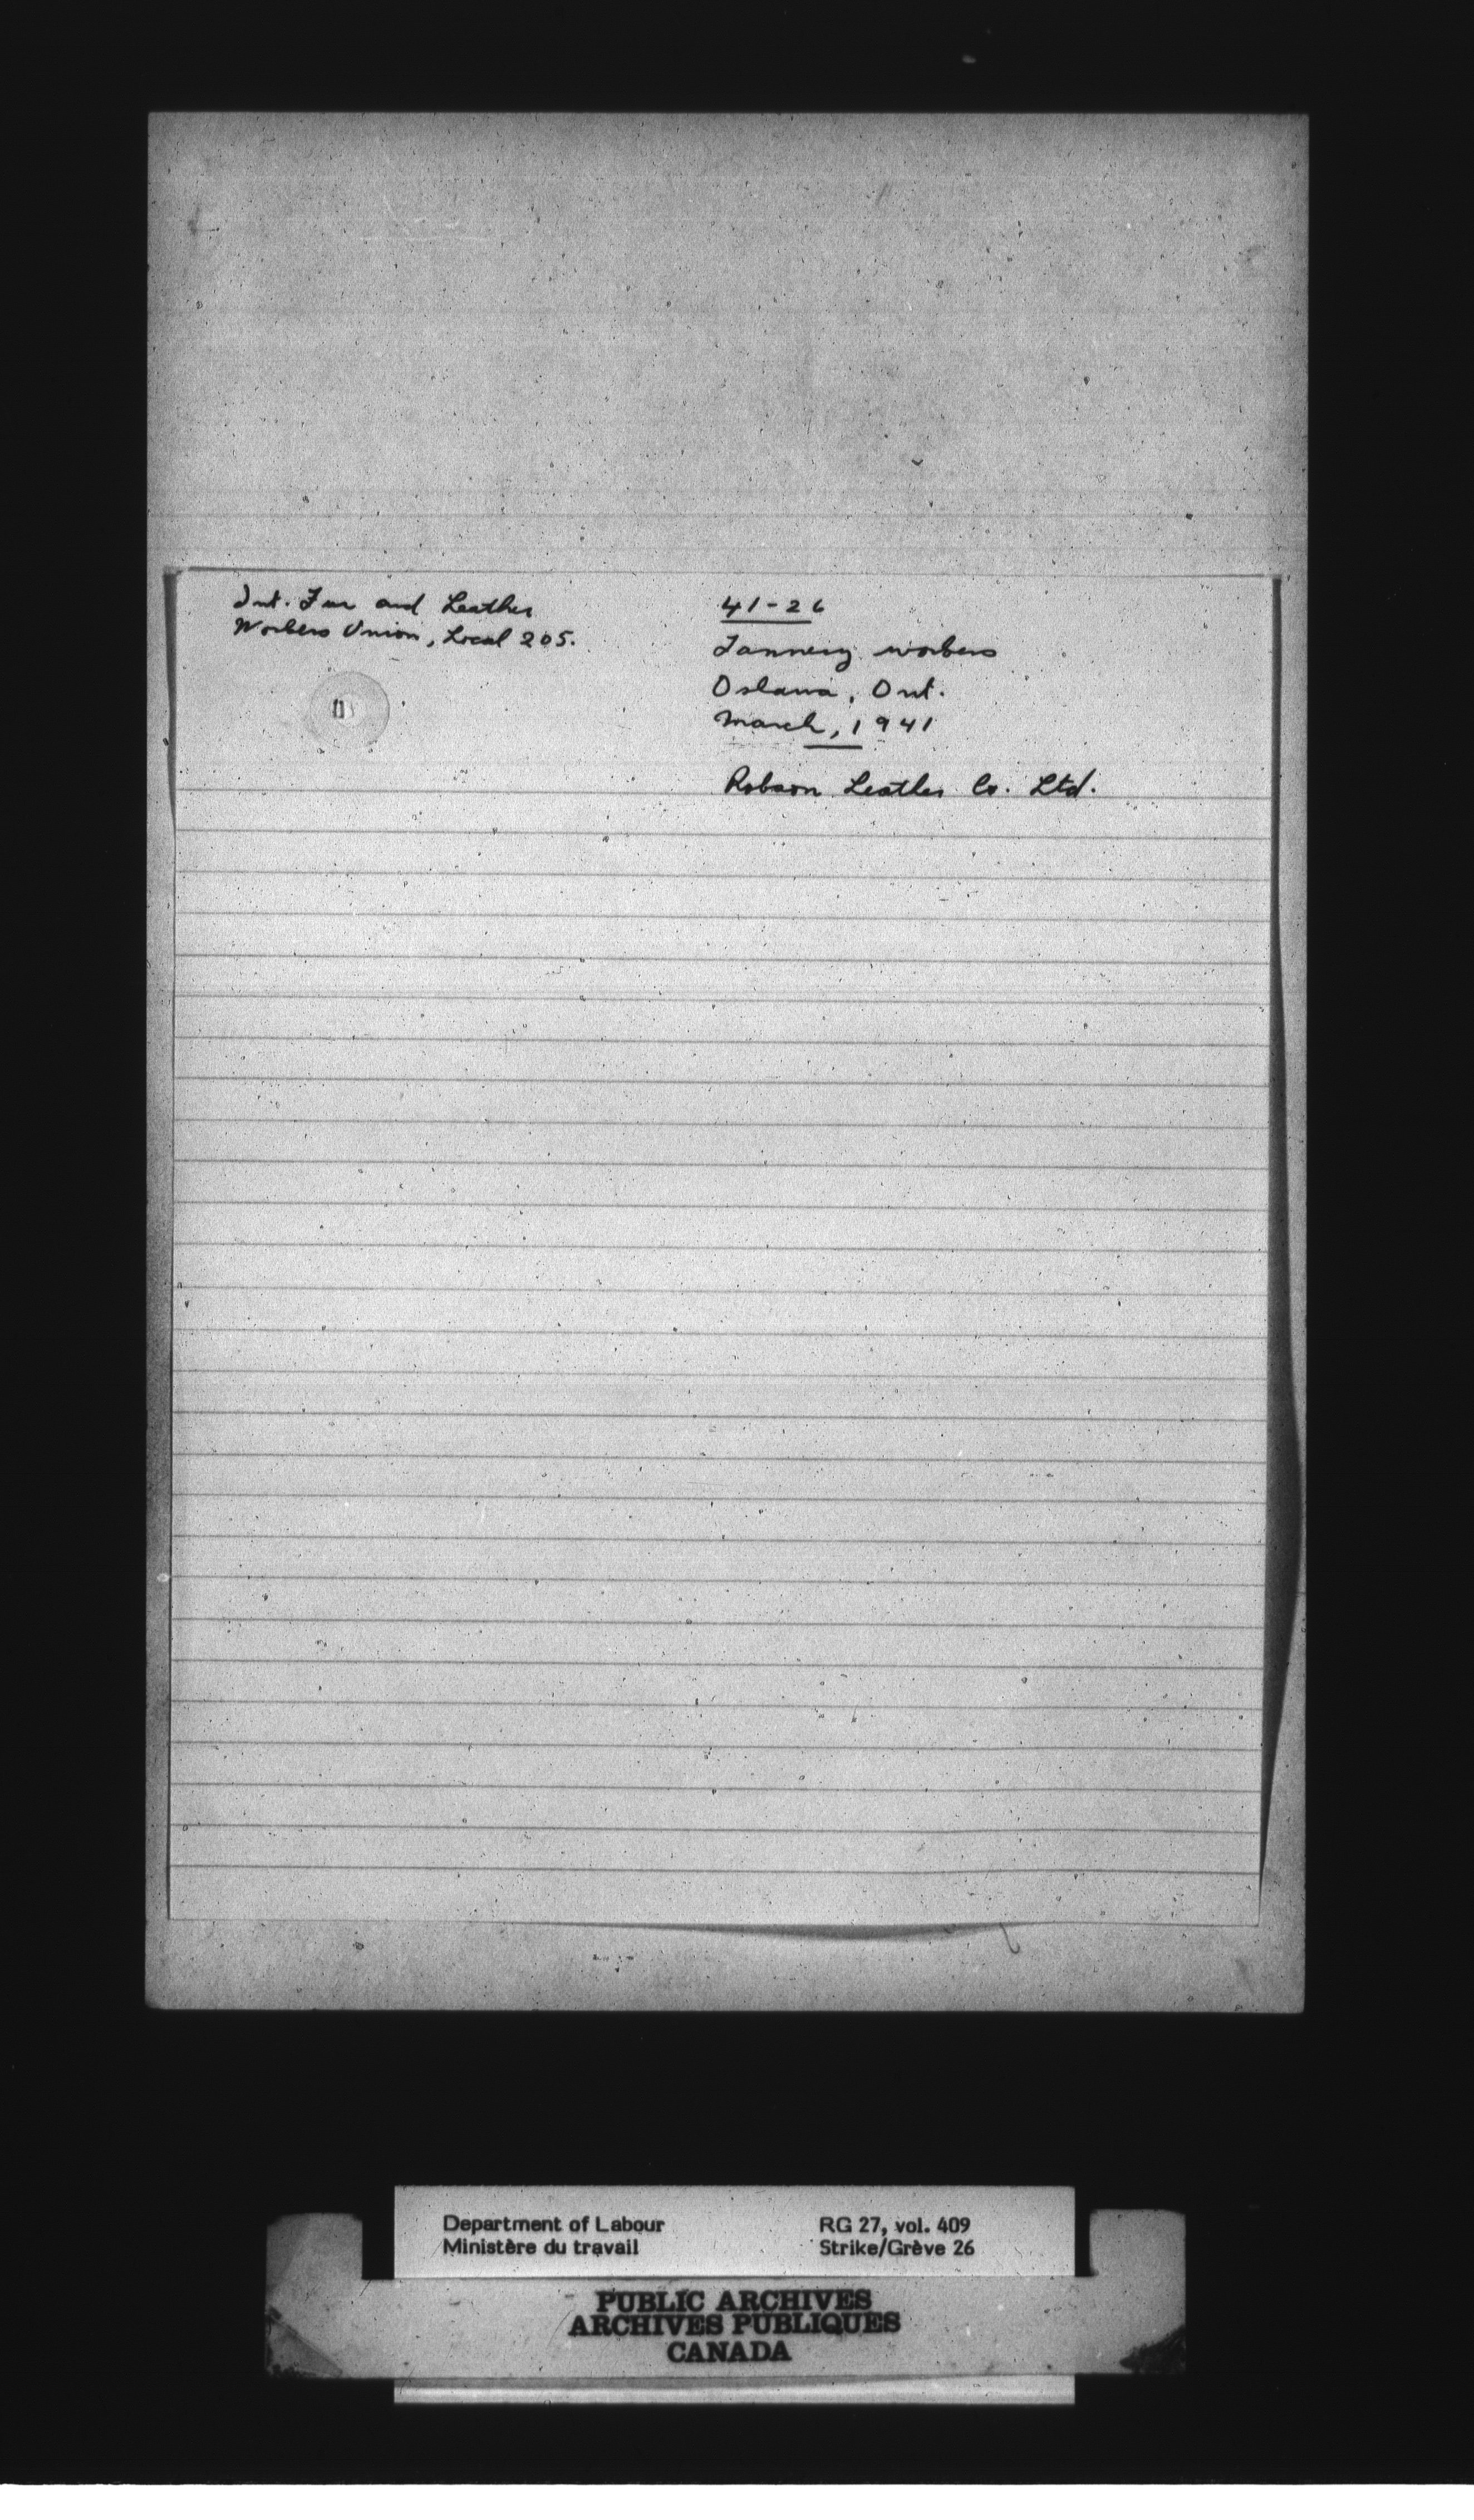 Int. Fur and Leather
Workers Union, Local 205.
41-26
Tannery workers
Oshawa, Ont.
March, 1941
Robson Leather Co. Ltd.
Department of Labour
Ministère du travail
RG 27, vol. 409
Strike/Grève 26
PUBLIC ARCHIVES
ARCHIVES PUBLIQUES
CANADA